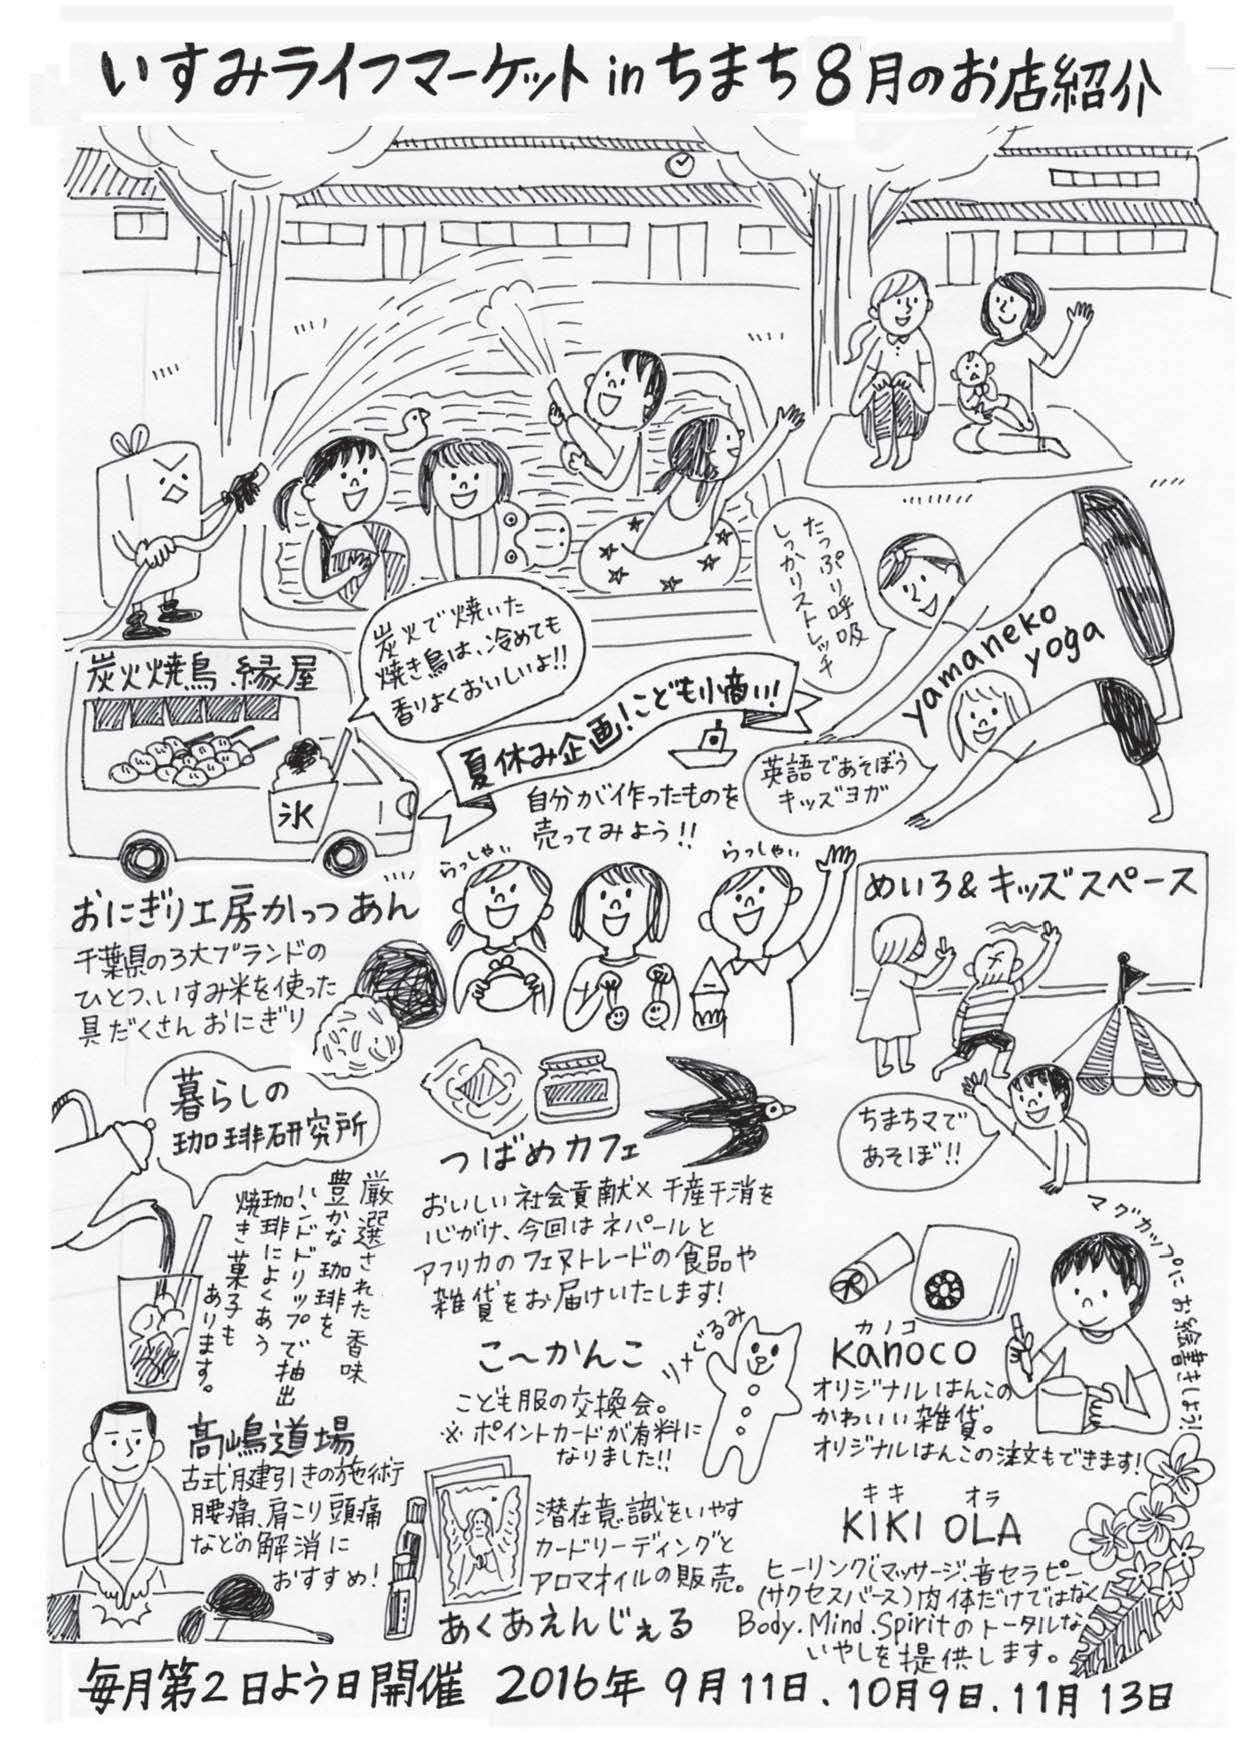 いすみライフマーケット in ちまち 8月のお店紹介
たっぷり呼吸
しっかりストレッチ
yamaneko
yoga
英語であそぼう
キッズヨガ
炭火で焼いた
焼き鳥は、冷めても
香りよくおいしいよ!!
炭火焼鳥 縁屋
氷
夏休み企画!こども小商い!
自分が作ったものを
売ってみよう!!
らっしゃい
らっしゃい
めいろ&キッズスペース
ちまちマで
あそぼ!!
おにぎり工房かっつあん
千葉県の3大ブランドの
ひとつ、いすみ米を使った
具だくさんおにぎり
暮らしの
珈琲研究所
厳選された香味
豊かな珈琲を
ハンドドリップで抽出
珈琲によくあう
焼き菓子も
あります。
つばめカフェ
おいしい社会貢献×千産千消を
心がけ、今回はネパールと
アフリカのフェアトレードの食品や
雑貨をお届けいたします!
マグカップにお絵書きしよう!
カノコ
kanoco
オリジナルはんこの
かわいい雑貨。
オリジナルはんこの注文もできます!
こ〜かんこ
こども服の交換会。
※ポイントカードが有料に
なりました!!
高嶋道場
古式腱引きの施術
腰痛、肩こり頭痛
などの解消に
おすすめ!
潜在意識をいやす
カードリーディングと
アロマオイルの販売。
あくあえんじぇる
キキ オラ
KIKI OLA
ヒーリング(マッサージ、音セラピー
(サクセスバース)肉体だけではなく
Body.Mind.Spiritのトータルな
いやしを提供します。
毎月第2日よう日開催 2016年 9月11日、10月9日、11月13日